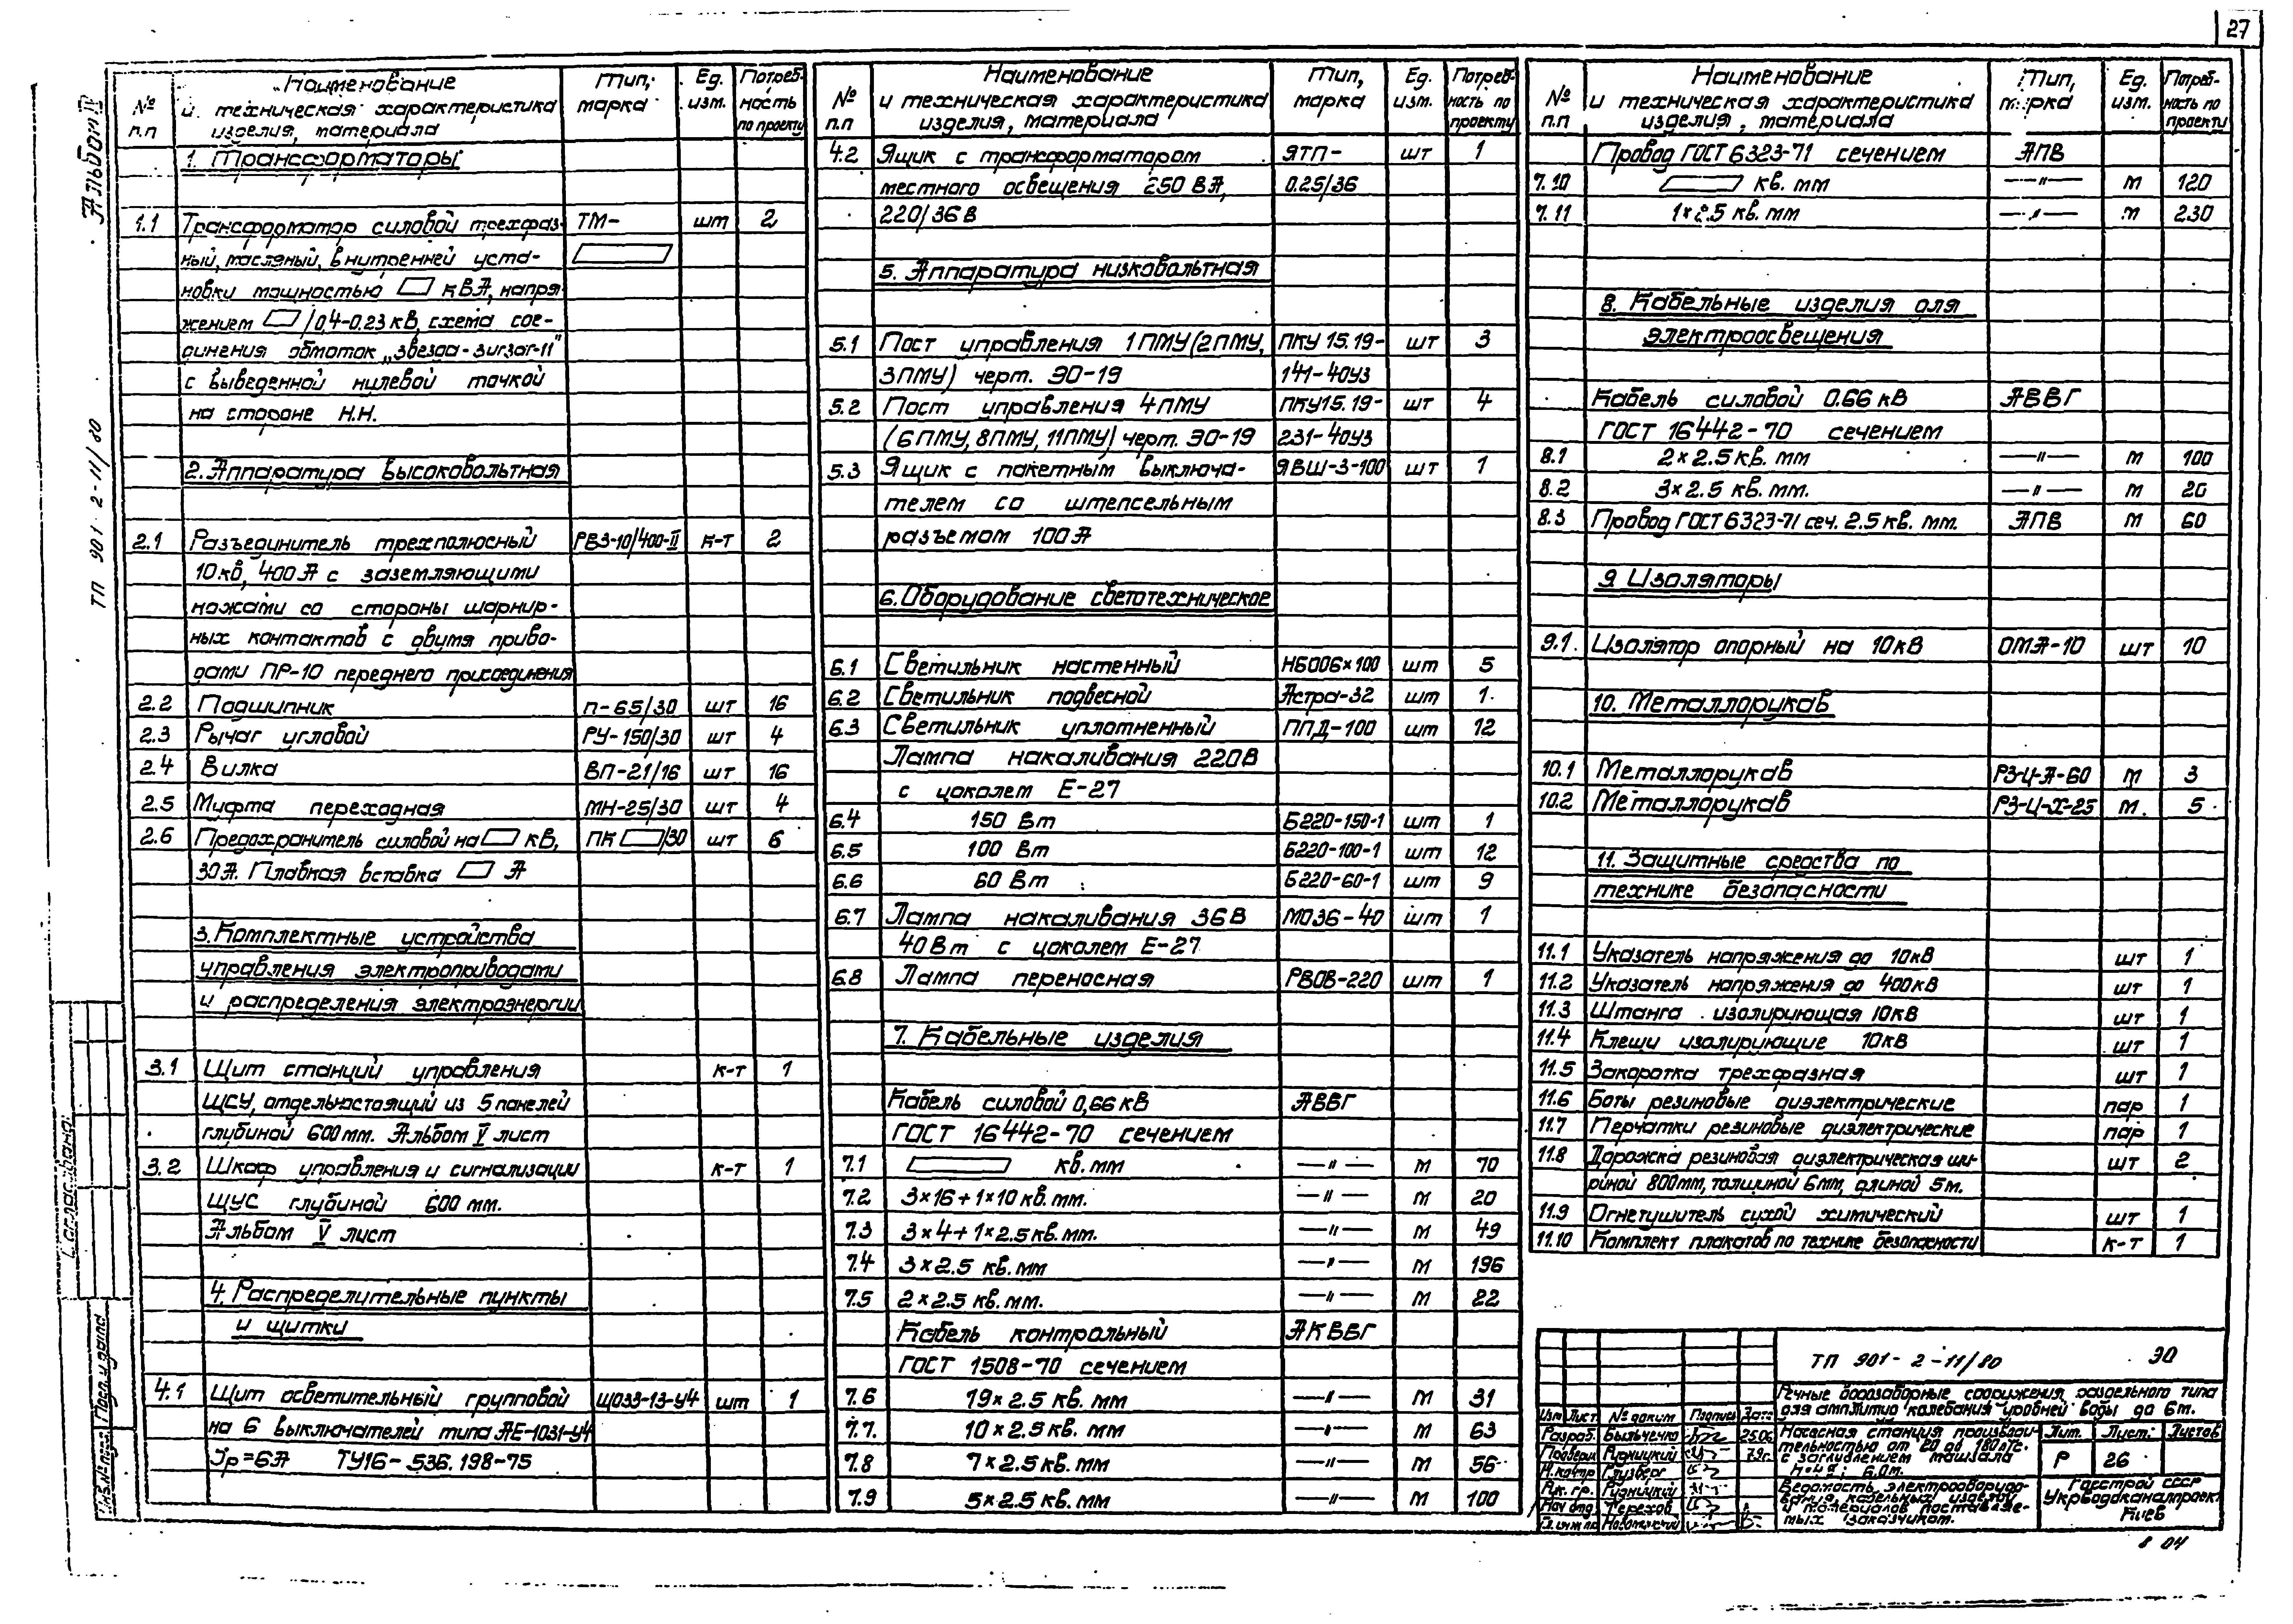 27
Альбом IV
ТП 901-2-11/80
№ п.п
Наименование и техническая характеристика изделия, материала
Тип, марка
Ед. изм.
Потребность по проекту
1. Трансформаторы
1.1 Трансформатор силовой трехфаз- ТМ- шт 2
ный, масляный, внутренней уста-
новки мощностью кВА, напря-
жением /0,4-0.23 кВ, схема сое-
динения обмоток „звезда-зигзаг-11"
с выведенной нулевой точкой
на стороне Н.Н.
2. Аппаратура высоковольтная
2.1 Разъединитель трехполюсный РВЗ-10/400-II к-т 2
10 кв, 400 А с заземляющими
ножами со стороны шарнир-
ных контактов с двумя приво-
дами ПР-10 переднего присоединения
2.2 Подшипник П-65/30 шт 16
2.3 Рычаг угловой РУ-150/30 шт 4
2.4 Вилка ВП-21/16 шт 16
2.5 Муфта переходная МН-25/30 шт 4
2.6 Предохранитель силовой на кВ, ПК /30 шт 6
30 А. Плавкая вставка А
3. Комплектные устройства
управления электроприводами
и распределения электроэнергии
3.1 Щит станций управления к-т 1
ЩСУ, отдельностоящий из 5 панелей
глубиной 600 мм. Альбом V лист
3.2 Шкаф управления и сигнализации к-т 1
ЩУС глубиной 600 мм.
Альбом V лист
4. Распределительные пункты
и щитки
4.1 Щит осветительный групповой ЩО33-13-У4 шт 1
на 6 выключателей типа АЕ-1031-У4
Jр=6А ТУ16-536.198-75
№ п.п
Наименование и техническая характеристика изделия, материала
Тип, марка
Ед. изм.
Потребность по проекту
4.2 Ящик с трансформатором ЯТП- шт 1
местного освещения 250 ВА, 0.25/36
220/36 В
5. Аппаратура низковольтная
5.1 Пост управления 1ПМУ (2ПМУ, ПКУ 15.19- шт 3
3ПМУ) черт. ЭО-19 141-40У3
5.2 Пост управления 4ПМУ ПКУ15.19- шт 4
(6ПМУ, 8ПМУ, 11ПМУ) черт. ЭО-19 231-40У3
5.3 Ящик с пакетным выключа- ЯВШ-3-100 шт 1
телем со штепсельным
разъемом 100 А
6. Оборудование светотехническое
6.1 Светильник настенный НБ006×100 шт 5
6.2 Светильник подвесной Астра-32 шт 1
6.3 Светильник уплотненный ППД-100 шт 12
Лампа накаливания 220В
с цоколем Е-27
6.4 150 Вт Б220-150-1 шт 1
6.5 100 Вт Б220-100-1 шт 12
6.6 60 Вт Б220-60-1 шт 9
6.7 Лампа накаливания 36 В МО36-40 шт 1
40 Вт с цоколем Е-27
6.8 Лампа переносная РВОВ-220 шт 1
7. Кабельные изделия
Кабель силовой 0,66 кВ АВВГ
ГОСТ 16442-70 сечением
7.1 кв. мм —"— м 70
7.2 3×16+1×10 кв. мм. —"— м 20
7.3 3×4+1×2.5 кв. мм. —"— м 49
7.4 3×2.5 кв. мм —"— м 196
7.5 2×2.5 кв. мм. —"— м 22
Кабель контрольный АКВВГ
ГОСТ 1508-70 сечением
7.6 19×2.5 кв. мм —"— м 31
7.7. 10×2.5 кв. мм —"— м 63
7.8 7×2.5 кв. мм —"— м 56
7.9 5×2.5 кв. мм —"— м 100
№ п.п
Наименование и техническая характеристика изделия, материала
Тип, марка
Ед. изм.
Потребность по проекту
Провод ГОСТ 6323-71 сечением АПВ
7.10 кв. мм —"— м 120
7.11 1×2.5 кв. мм —"— м 230
8. Кабельные изделия для
электроосвещения
Кабель силовой 0.66 кВ АВВГ
ГОСТ 16442-70 сечением
8.1 2×2.5 кв. мм —"— м 100
8.2 3×2.5 кв. мм. —"— м 20
8.3 Провод ГОСТ 6323-71 сеч. 2.5 кв. мм. АПВ м 60
9. Изоляторы
9.1. Изолятор опорный на 10 кВ ОМА-10 шт 10
10. Металлорукав
10.1 Металлорукав РЗ-Ц-А-60 м 3
10.2 Металлорукав РЗ-Ц-Х-25 м. 5
11. Защитные средства по
технике безопасности
11.1 Указатель напряжения до 10 кВ шт 1
11.2 Указатель напряжения до 400 кВ шт 1
11.3 Штанга изолирующая 10 кВ шт 1
11.4 Клещи изолирующие 10 кВ шт 1
11.5 Закоротка трехфазная шт 1
11.6 Боты резиновые диэлектрические пар 1
11.7 Перчатки резиновые диэлектрические пар 1
11.8 Дорожка резиновая диэлектрическая ши- шт 2
риной 800 мм, толщиной 6 мм, длиной 5 м.
11.9 Огнетушитель сухой химический шт 1
11.10 Комплект плакатов по технике безопасности к-т 1
ТП 901-2-11/80 ЭО
Речные водозаборные сооружения раздельного типа
для амплитуд колебания уровней воды до 6 м.
Изм Лист № докум Подпись Дата
Разраб.
Проверил Рудницкий
Н. контр Глузберг
Рук. гр. Рудницкий
Нач отд Терехов
Насосная станция производи-
тельностью от 20 до 180 л/с.
с заглублением машзала
6.0 м.
Лит. Лист Листов
Р 26
Ведомость электрооборудо-
вания, кабельных изделий
и материалов поставляе-
мых заказчиком.
Госстрой СССР
Укрводоканалпроект
Киев
Согласовано:
Инв. № подл. Подп. и дата